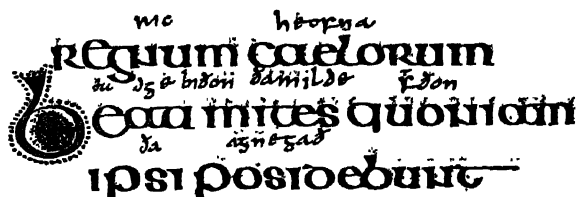 ric heofna
regnum caelorum
biðon ða milde f̄ðon
Beati mites quoniam
ða agnegað
ipsi posidebunt